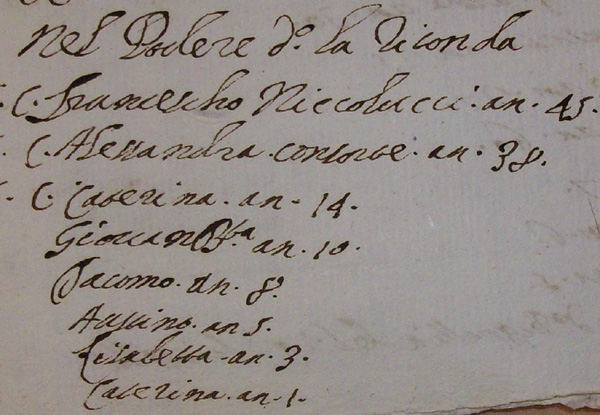 Nel Podere d.º la Ticonda
C. Francescho Niccolucci. an. 45.
C. Alessandra consorte. an. 38.
C. Caterina. an. 14.
Giovan B.ta an. 10.
Jacomo. an. 8.
an 5.
Lisabetta. an. 3.
Caterina. an. 1.